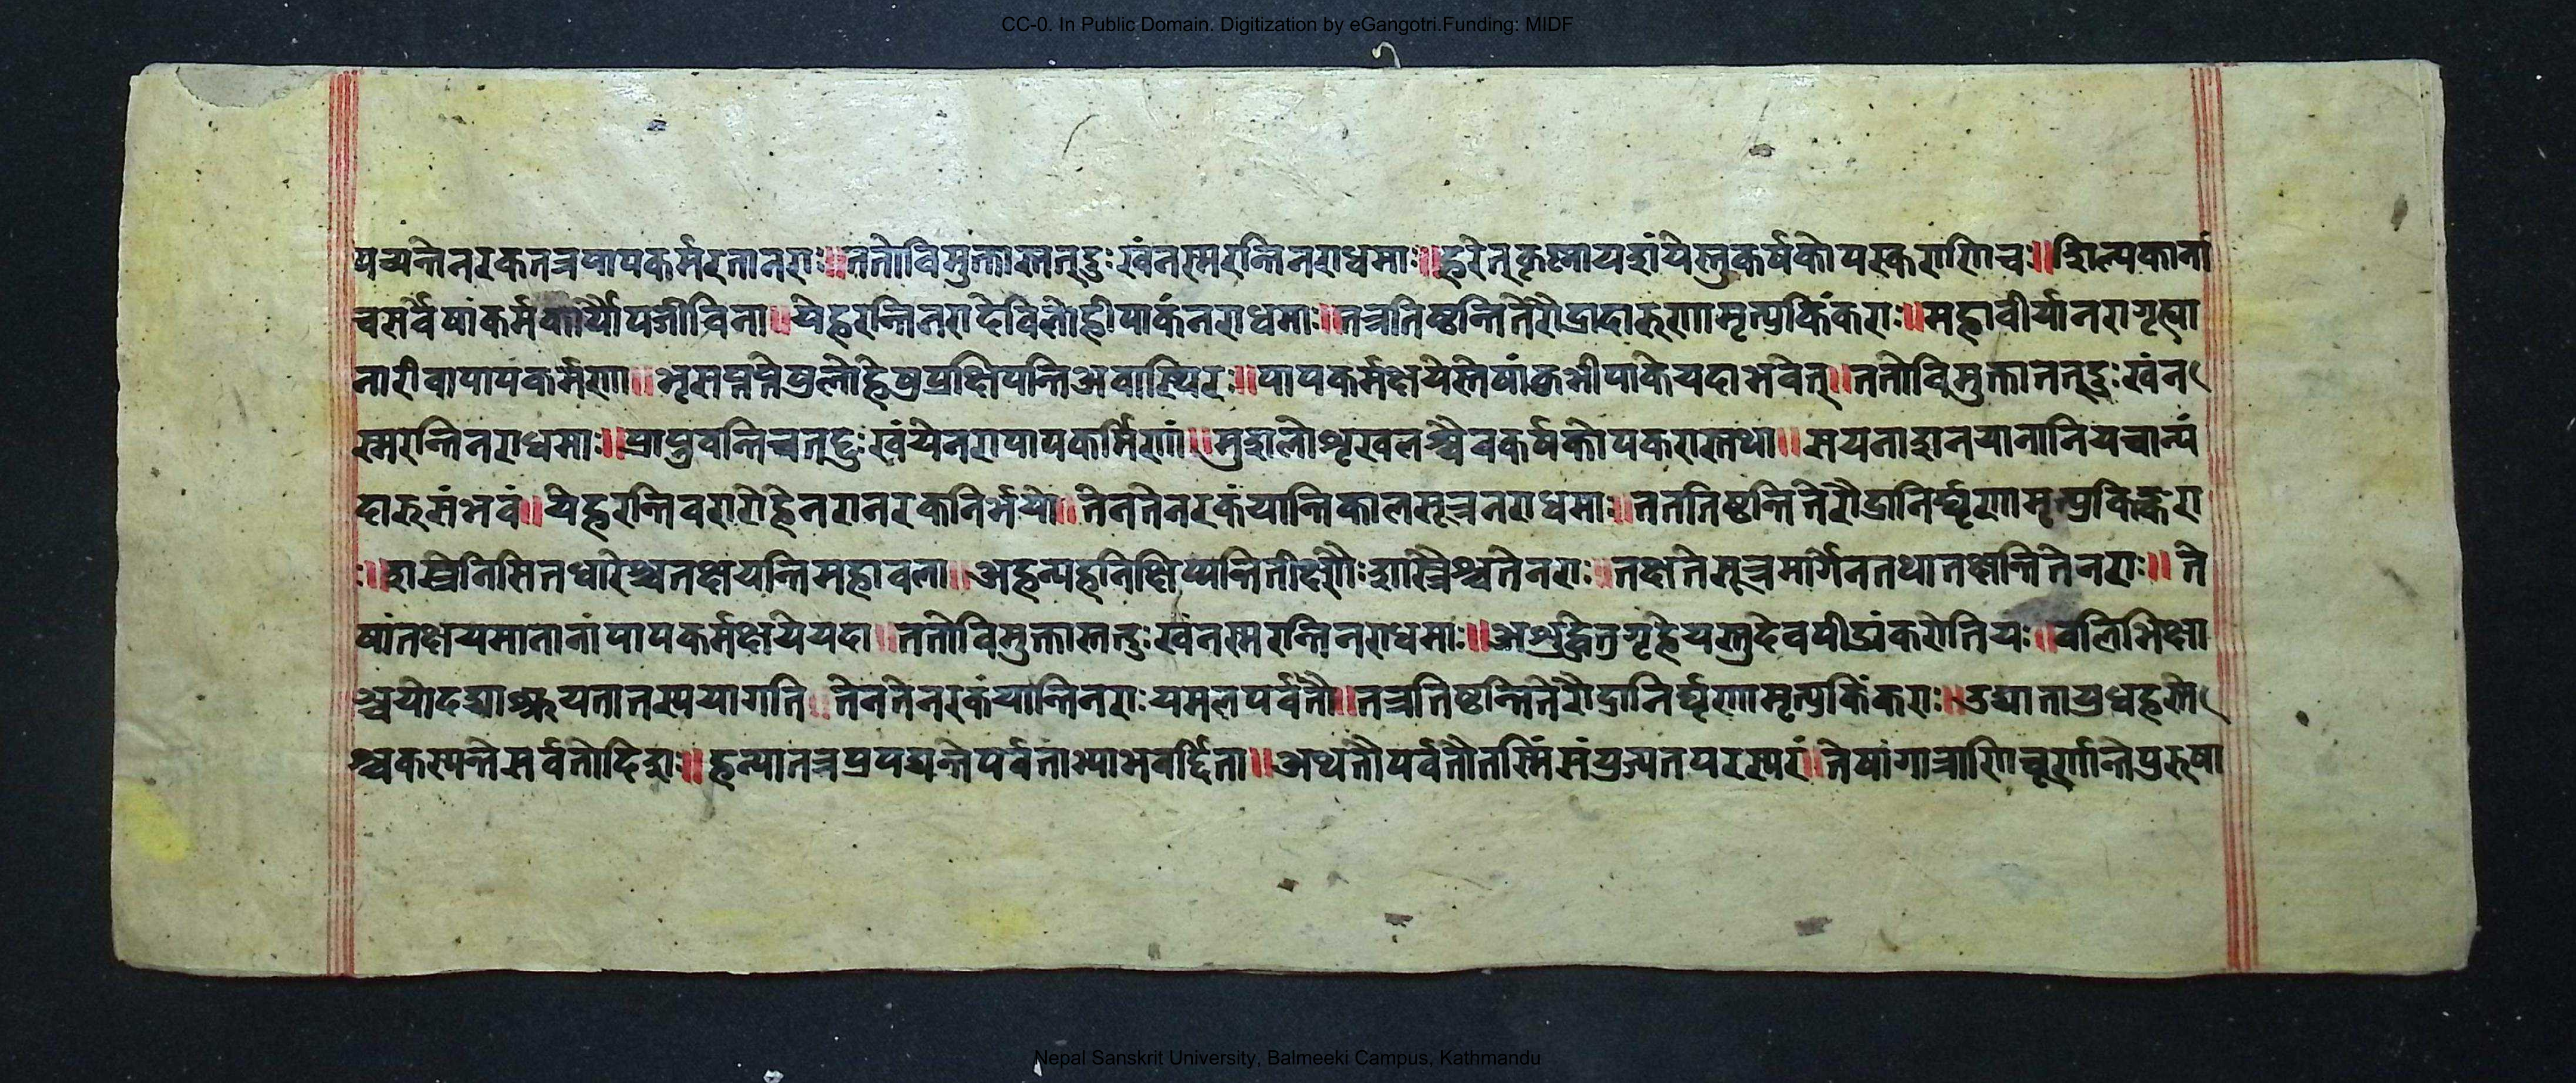 CC-0. In Public Domain. Digitization by eGangotri.Funding: MIDF
पच्यन्ते नरक तत्र पापकर्मरता नराः ॥ ततो विमुक्तास्तत्दुःखं न स्मरन्ति नराधमाः ॥ हरेत् कृष्णायशं येस्तु कर्षकोपस्कराणि च ॥ शिल्पकानां
च सर्वेषां कर्मकार्योपजीविना ॥ ये हरन्ति नरा देवि लोहीपाकं नराधमाः ॥ तत्र तिष्ठन्ति ते रौद्रा दारुणा मृत्युकिंकराः ॥ महावीर्या नरा गृह्या
नारी वा पापकर्मणा ॥ भृस प्रक्षिपन्ति अवाख्यिरः ॥ पापकर्मक्षये स्तेषां कुभीपाके यदा भवेत् ॥ ततो विमुक्ता तत्दुःखं न
स्मरन्ति नराधमाः ॥ प्राप्नुवन्ति च तत्दुःखं ये नरा पापकर्मिणां ॥ मुशलो शृखलश्चैव कर्षकोपकरास्तथा ॥ सयनाशनयानानि यचान्यं
दारुसंभवं ॥ ये हरन्ति वरारोहे नरा नरकनिर्भयो ॥ तेन ते नरकं यान्ति कालसूत्र नराधमाः ॥ तत तिष्ठन्ति ते रौद्रा निर्घृणा मृत्युकिङ्करा
ः ॥ शस्त्रे निसितधारैश्च तक्षयन्ति महावला ॥ अहन्यहनि क्षिप्यन्ति तीक्ष्णैः शस्त्रैश्च ते नराः ॥ तक्षते सूत्रमार्गेन तथा तक्षन्ति ते नराः ॥ ते
षां तक्षयमानानां पापकर्मक्षये यदा ॥ ततो विमुक्तास्तत्दुःखं न स्मरन्ति नराधमाः ॥ गृहे यस्तु देवपीडां करोति यः ॥ वलिभिक्षा
तेन ते नरकं यान्ति नराः यमलपर्वतौ ॥ तत्र तिष्ठन्ति ते रौद्रा निर्घृणा मृत्युकिंकराः ॥
श्च कस्पन्ते सर्वतो दिशः ॥ हन्या तत्र प्रपद्यन्ते पर्वताभ्या ॥ अथ तौ पर्वतौ तस्मिं परस्परं ॥ तेषां गात्राणि चूर्णान्ते पुरुषा
Nepal Sanskrit University, Balmeeki Campus, Kathmandu